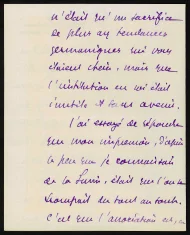 n'était qu'un sacrifice
de plus aux tendances
germaniques qui vous
étaient chères, mais que
l'institution en soi était
inutile et sans avenir.
J'ai essayé de répondre
que mon impression, d'après
le peu que je connaissais
de la , était que l'on se
trompait du tout au tout.
C'est que l'association est,